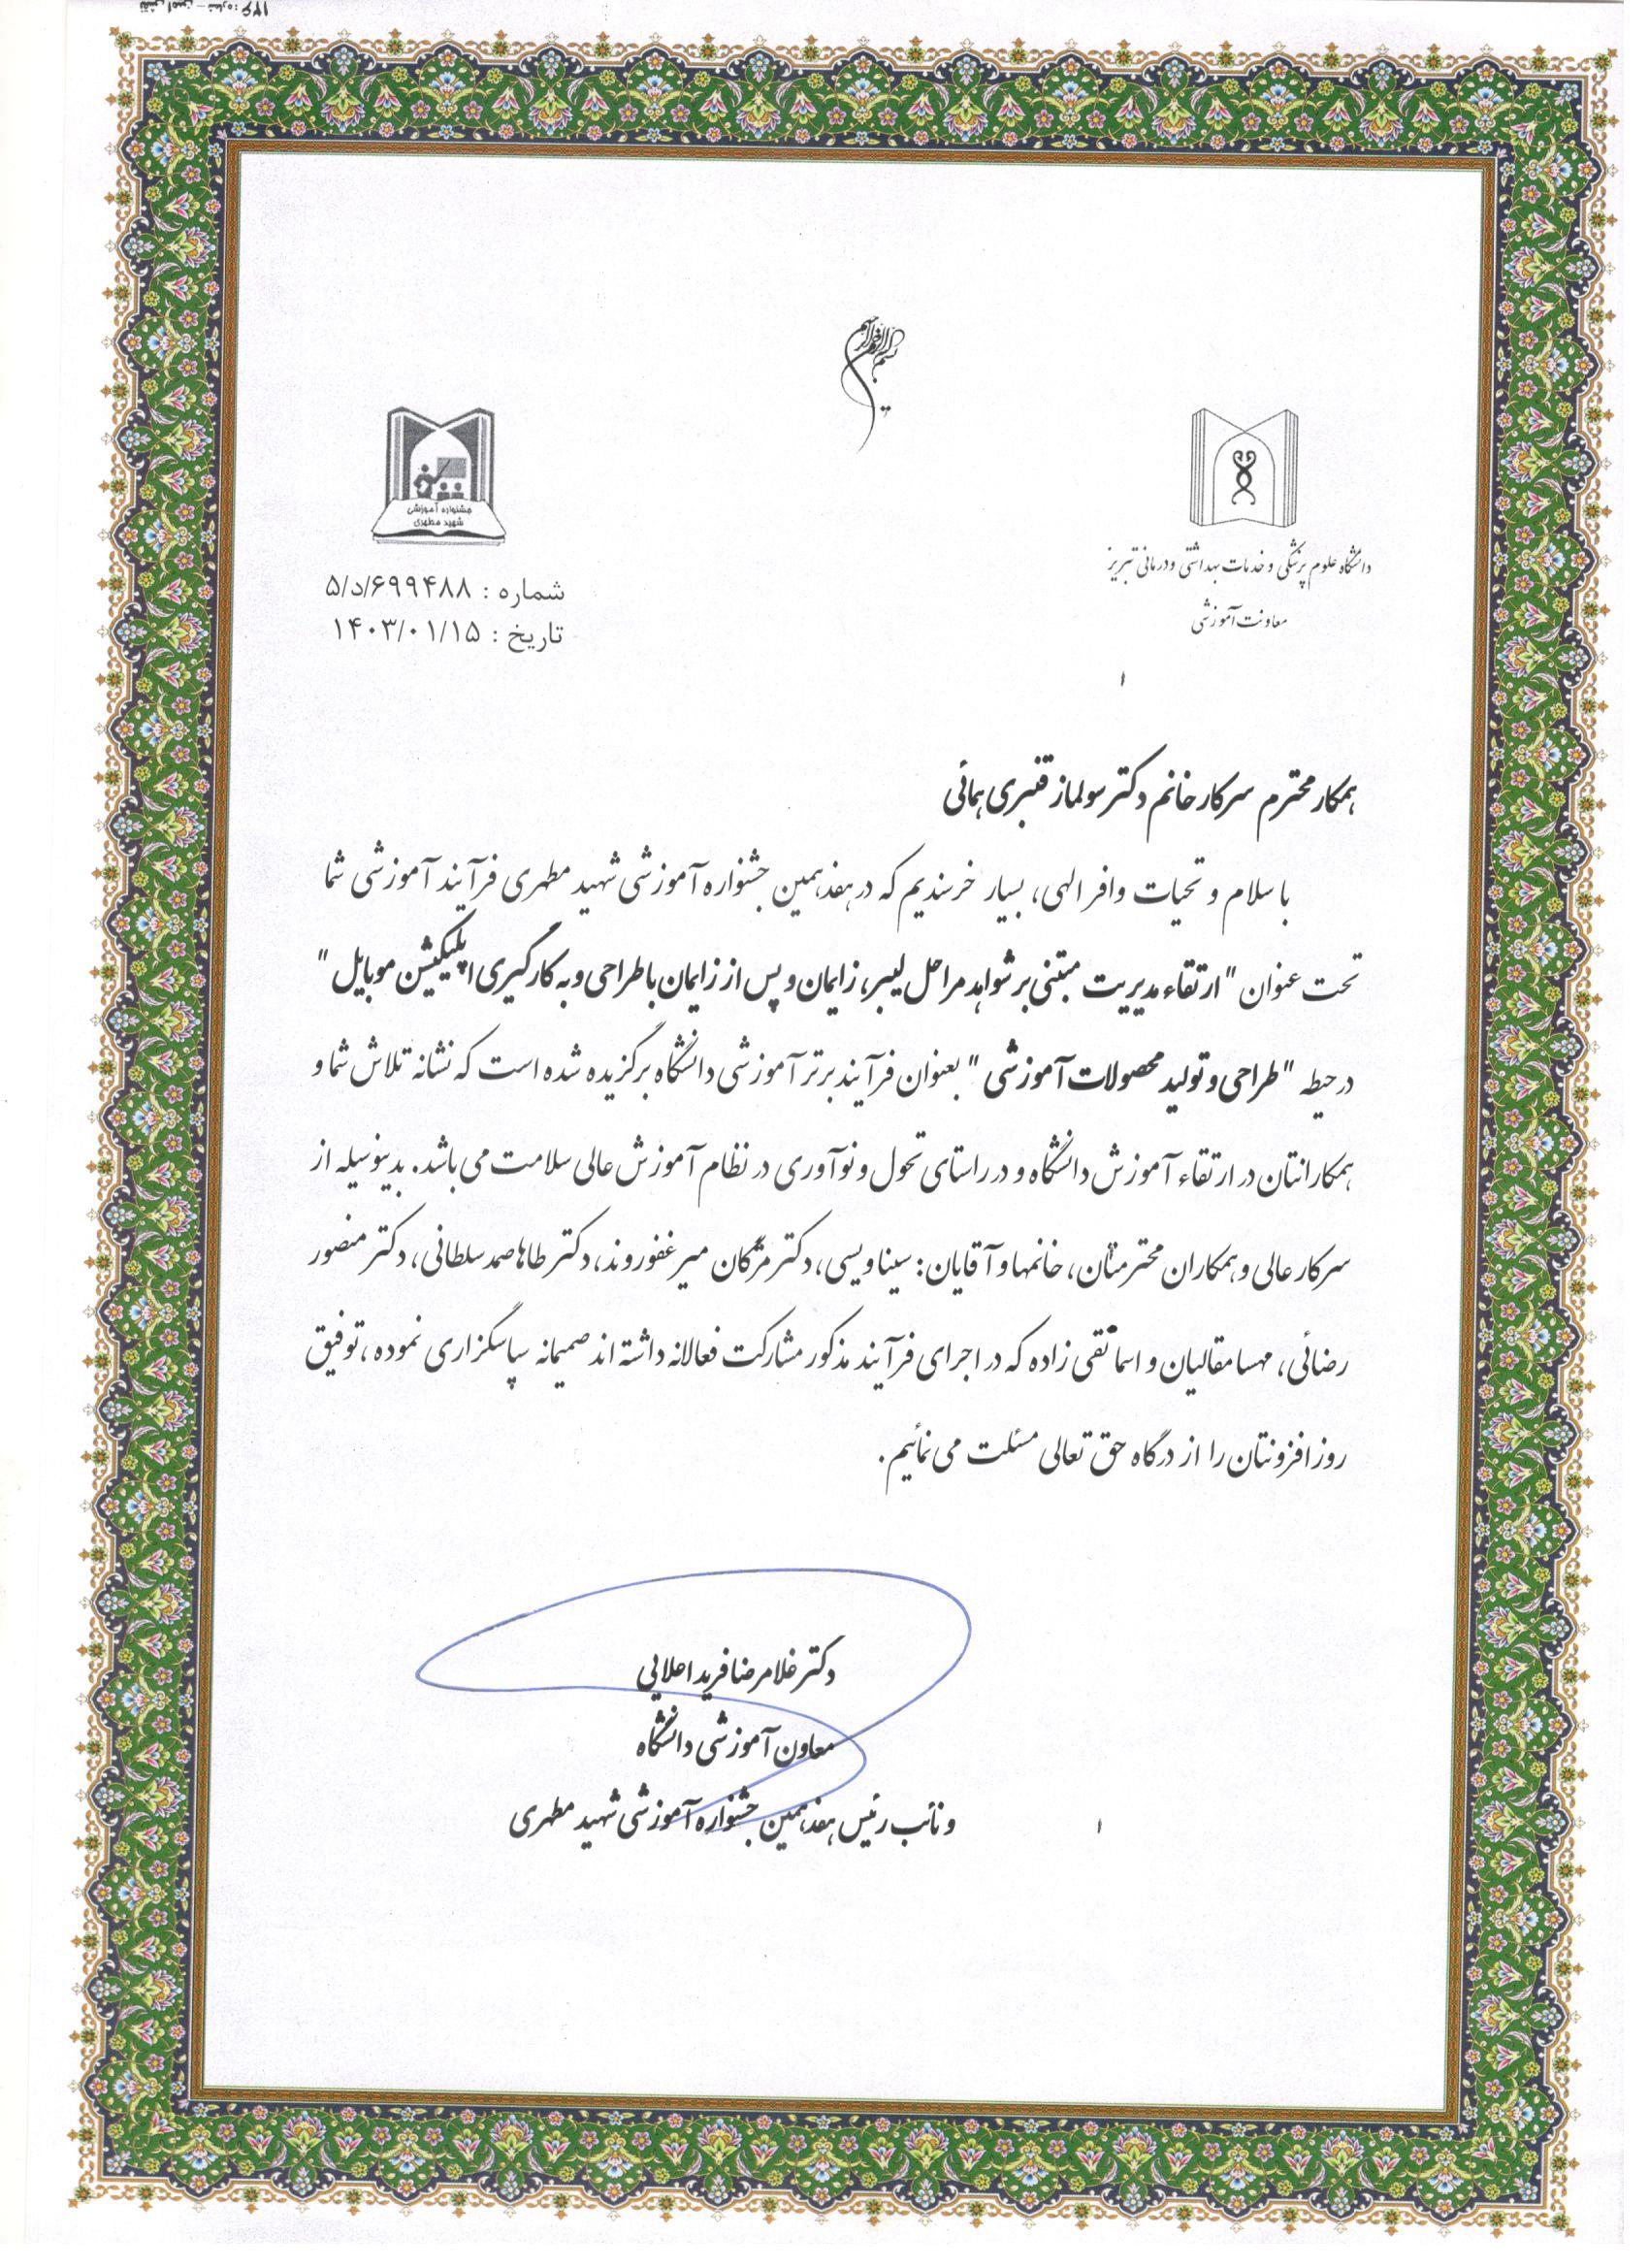 نقش امین - شماره: ۱۲۶
بسم الله الرحمن الرحیم
جشنواره آموزشی
شهید مطهری
دانشگاه علوم پزشکی و خدمات بهداشتی و درمانی تبریز
معاونت آموزشی
شماره : ۵/د/۶۹۹۴۸۸
تاریخ : ۱۴۰۳/۰۱/۱۵
همکار محترم سرکار خانم دکتر سولماز قنبری همائی
با سلام و تحیات وافر الهی، بسیار خرسندیم که در هفدهمین جشنواره آموزشی شهید مطهری فرآیند آموزشی شما
تحت عنوان "ارتقاء مدیریت مبتنی بر شواهد مراحل لیبر، زایمان و پس از زایمان با طراحی و به کارگیری اپلیکیشن موبایل"
در حیطه "طراحی و تولید محصولات آموزشی" بعنوان فرآیند برتر آموزشی دانشگاه برگزیده شده است که نشانه تلاش شما و
همکارانتان در ارتقاء آموزش دانشگاه و در راستای تحول و نوآوری در نظام آموزش عالی سلامت می باشد. بدینوسیله از
سرکار عالی و همکاران محترمتان، خانمها و آقایان: سینا ویسی، دکتر مژگان میرغفوروند، دکتر طاها صمد سلطانی، دکتر منصور
رضائی، مهسا مقالیان و اسما تقی زاده که در اجرای فرآیند مذکور مشارکت فعالانه داشته اند صمیمانه سپاسگزاری نموده، توفیق
روزافزونتان را از درگاه حق تعالی مسئلت می نمائیم.
دکتر غلامرضا فرید اعلایی
معاون آموزشی دانشگاه
و نائب رئیس هفدهمین جشنواره آموزشی شهید مطهری